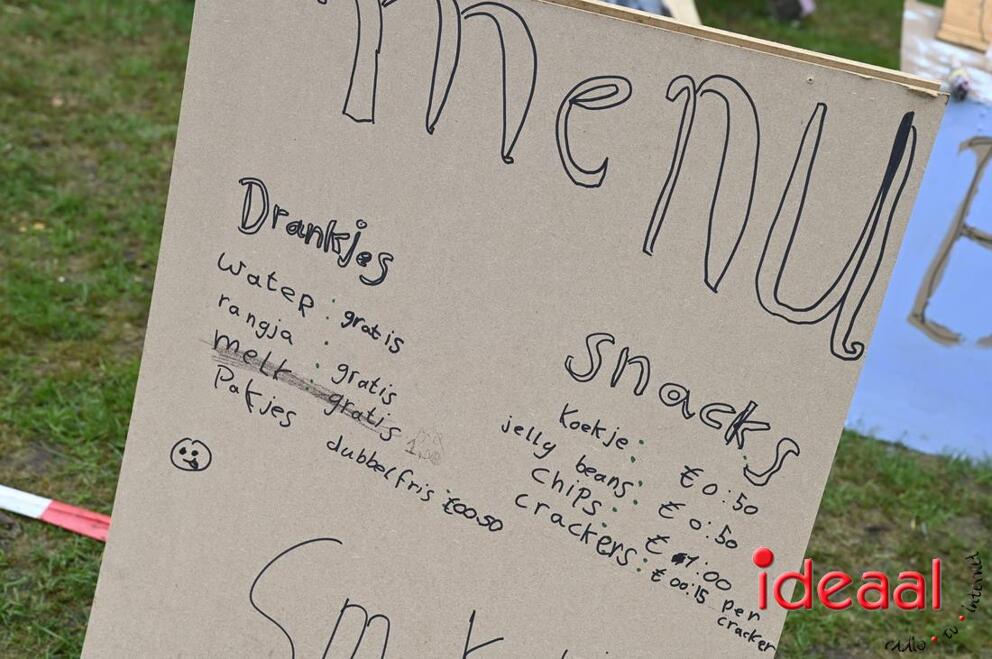 menu
Drankjes
water : gratis
rangja : gratis
melk : gratis
Pakjes dubbelfris €00.50
Snacks
Koekje : € 0:50
jelly beans : € 0:50
Chips : € 1:00
crackers : € 00:15 per cracker
ideaal
radio • tv • internet